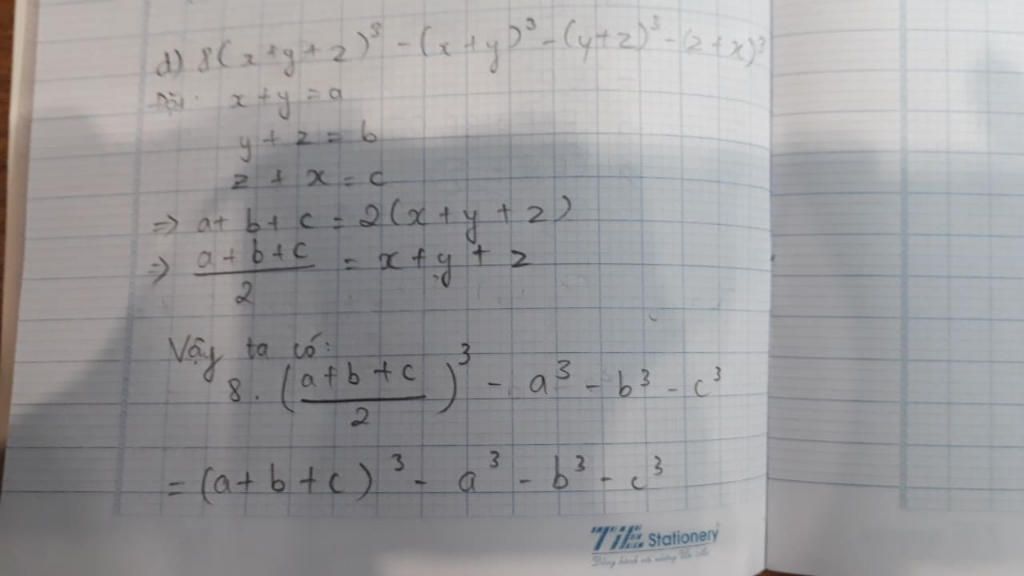 d) 8(x+y+z)³ - (x+y)³ - (y+z)³ - (z+x)³
Đặt: x+y = a
y + z = b
z + x = c
⇒ a+ b+ c = 2(x+y+z)
⇒ (a+b+c)/2 = x+y+z
Vậy ta có:
8. ((a+b+c)/2)³ - a³ - b³ - c³
= (a+b+c)³ - a³ - b³ - c³
TiE Stationery